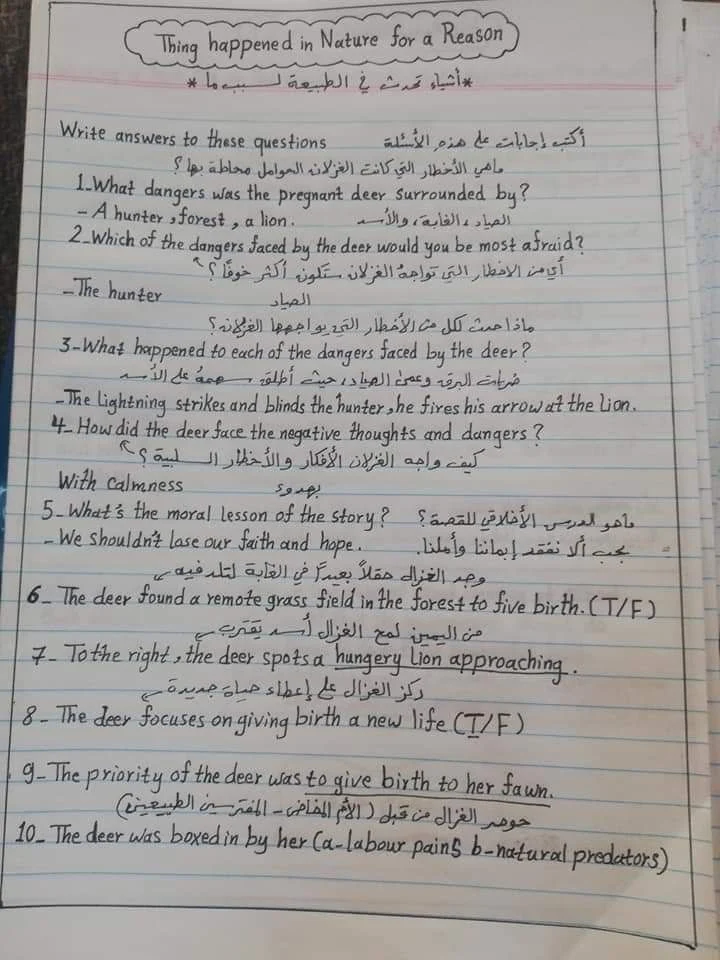 Thing happened in Nature for a Reason
* أشياء تحدث في الطبيعة لسبب ما *
Write answers to these questions أكتب إجابات على هذه الأسئلة
ماهي الأخطار التي كانت الغزلان الحوامل محاطة بها؟
1_What dangers was the pregnant deer surrounded by?
- A hunter, forest, a lion. الصياد، الغابة، والأسد
2_Which of the dangers faced by the deer would you be most afraid?
أي من الاخطار التي تواجه الغزلان ستكون أكثر خوفًا؟
_The hunter الصياد
ماذا حدث لكل من الأخطار التي يواجهها الغزلان؟
3-What happened to each of the dangers faced by the deer?
ضربات البرق وعمى الصياد، حيث أطلق سهمهُ على الأسد
-The lightning strikes and blinds the hunter, he fires his arrow at the lion.
4_ How did the deer face the negative thoughts and dangers?
كيف واجه الغزلان الأفكار والأخطار السلبية؟
With calmness بهدوء
5-What's the moral lesson of the story? ماهو الدرس الأخلاقي للقصة؟
- We shouldn't lose our faith and hope. يجب ألا نفقد إيماننا وأملنا.
وجد الغزال حقلاً بعيدًا في الغابة لتلد فيه
6_ The deer found a remote grass field in the forest to five birth. (T/F)
من اليمين لمح الغزال أسد يقترب
7_ To the right, the deer spots a hungery lion approaching.
ركز الغزال على إعطاء حياة جديدة
8_ The deer focuses on giving birth a new life (T/F)
9_The priority of the deer was to give birth to her fawn.
حوصر الغزال من قبل (الأم المخاض - المفترسين الطبيعين)
10_ The deer was boxed in by her (a-labour pains b-natural predators)